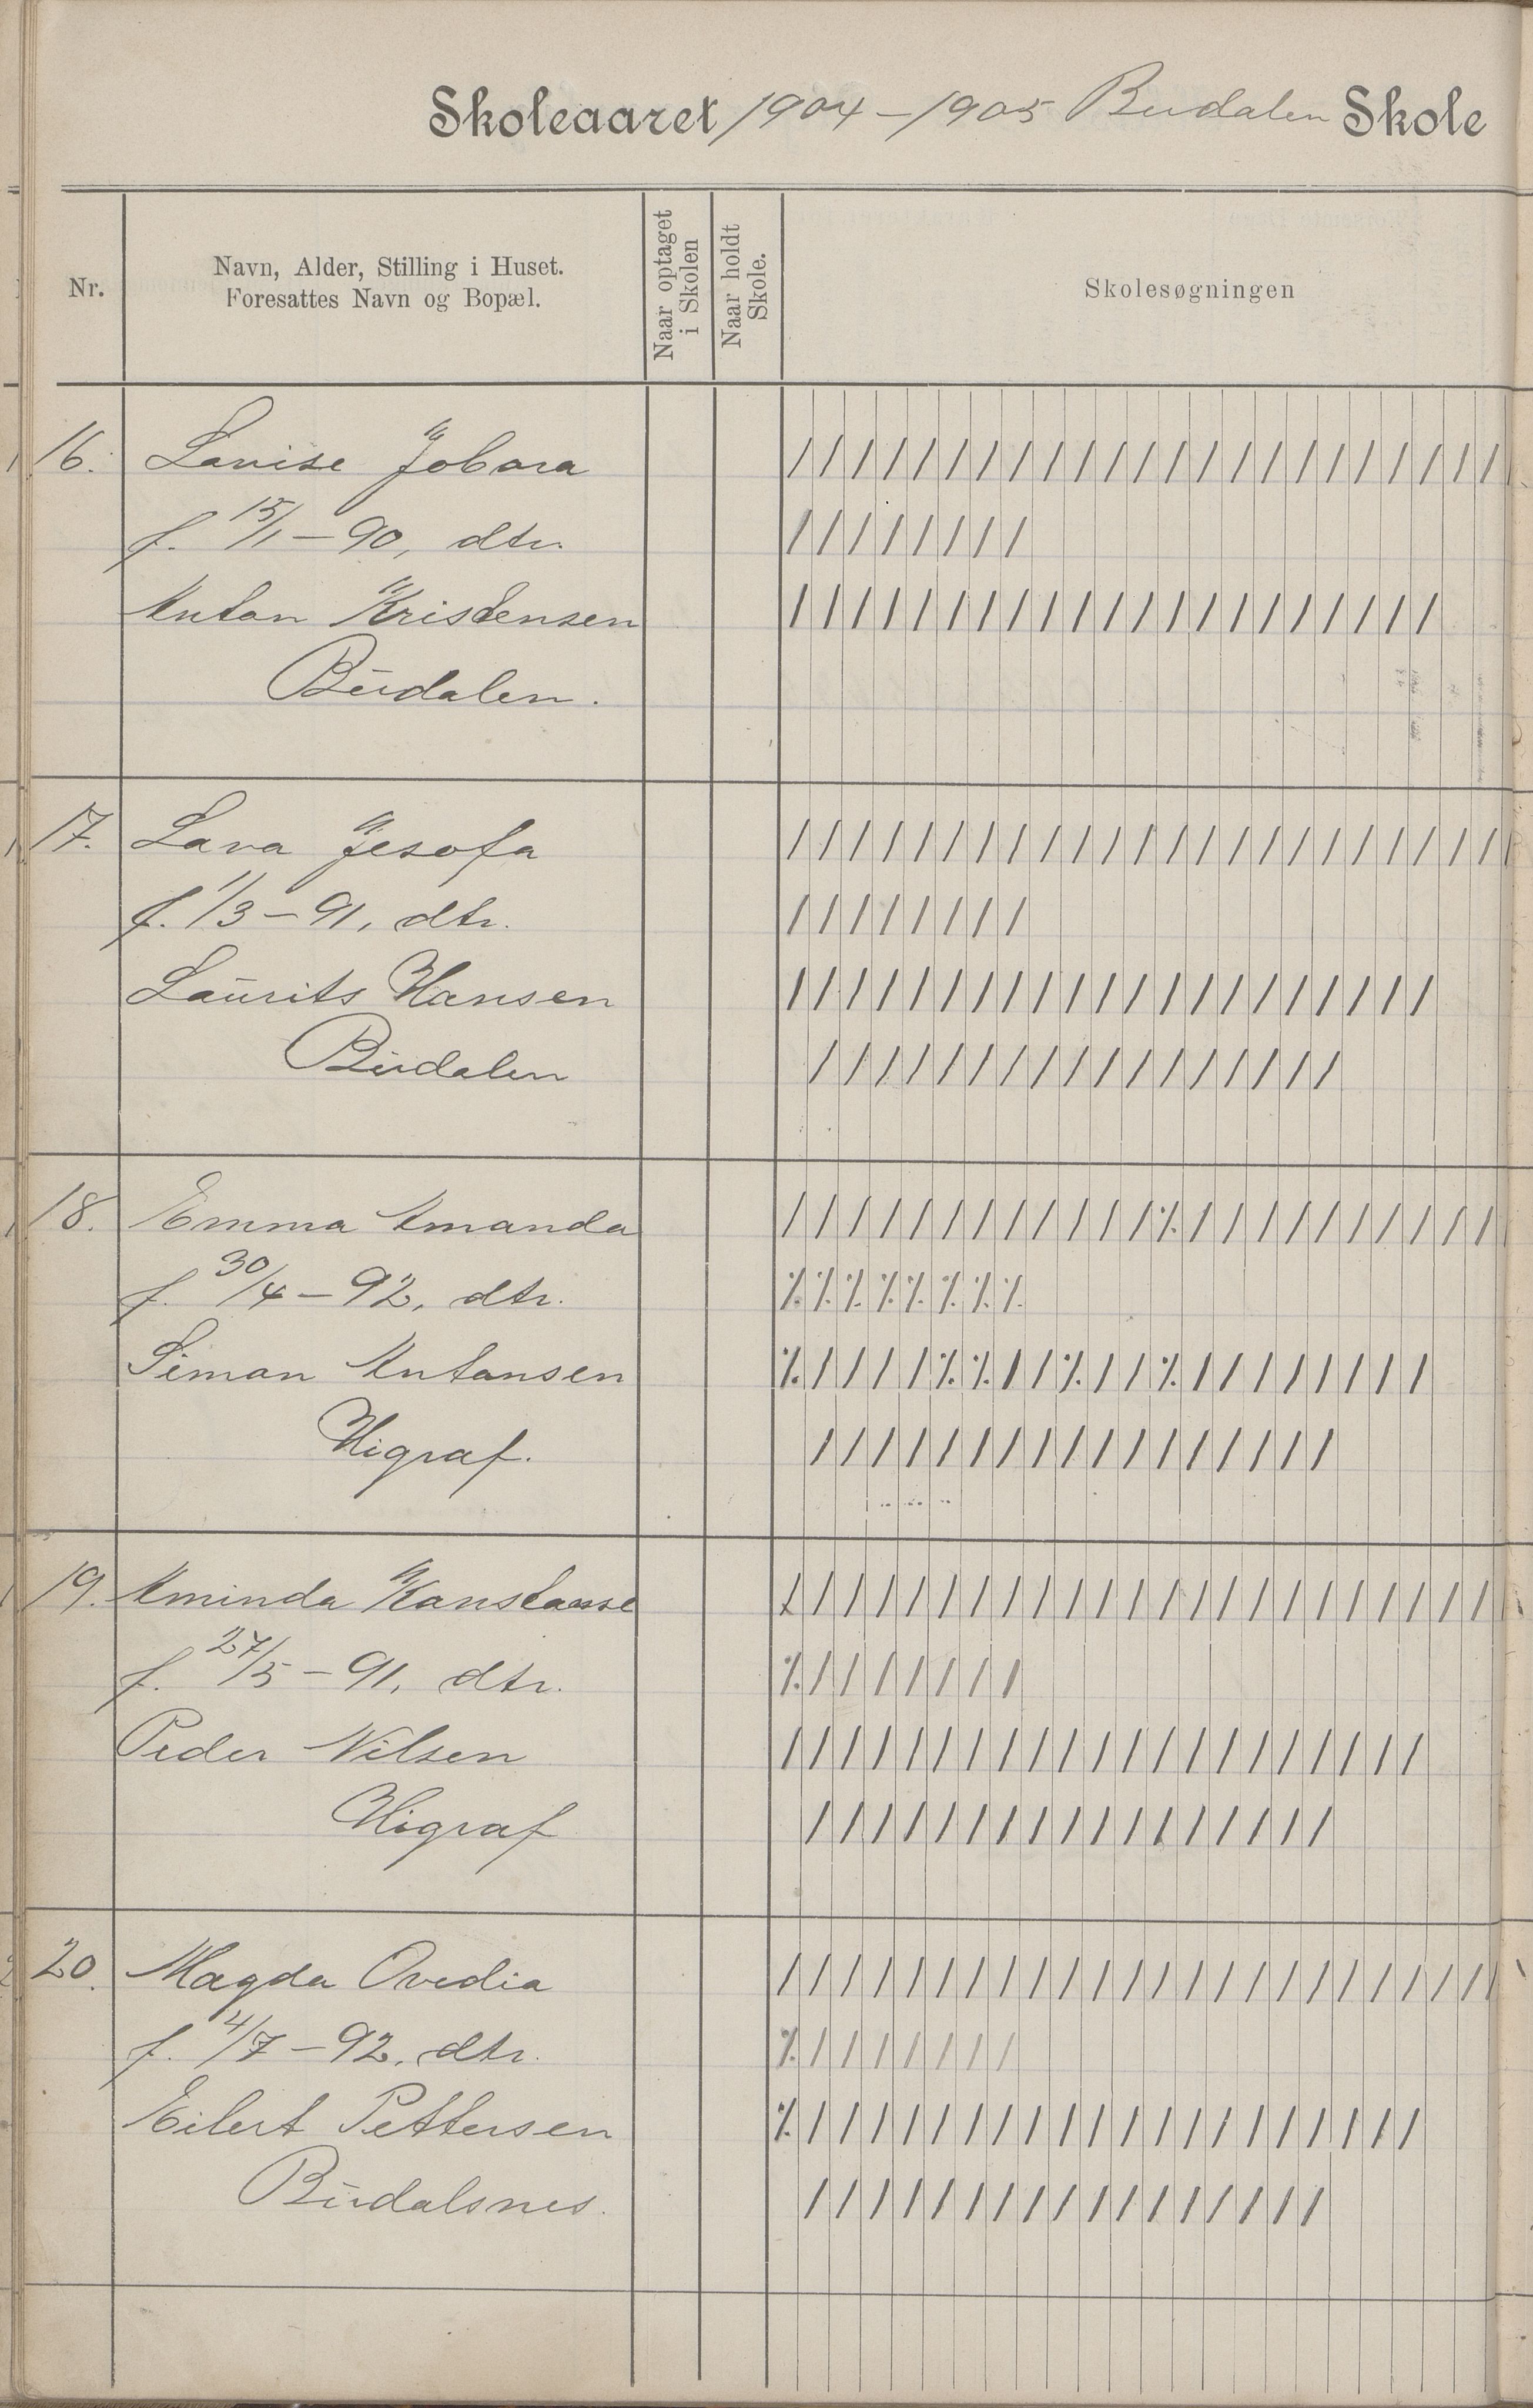 Skoleaaret 1904-1905 Budalen Skole
Nr.
Navn, Alder, Stilling i Huset.
Foresattes Navn og Bopæl.
Naar optaget
i Skolen
Naar holdt
Skole.
Skolesøgningen
16. Lovise Jobara
f. 15/1-90, dtr.
Anton Kristensen
Budalen.
17. Lava Jesofa
f. 1/3-91, dtr.
Laurits Hansen
Budalen
18. Emma Amanda
f. 30/4-92, dtr.
Simon Antonsen
Higraf.
19. Aminda Konstanse
f. 27/5-91, dtr.
Peder Nilsen
Higraf
20. Magda Ovedia
f. 4/7-92, dtr.
Eilert Pettersen
Budalsnes.